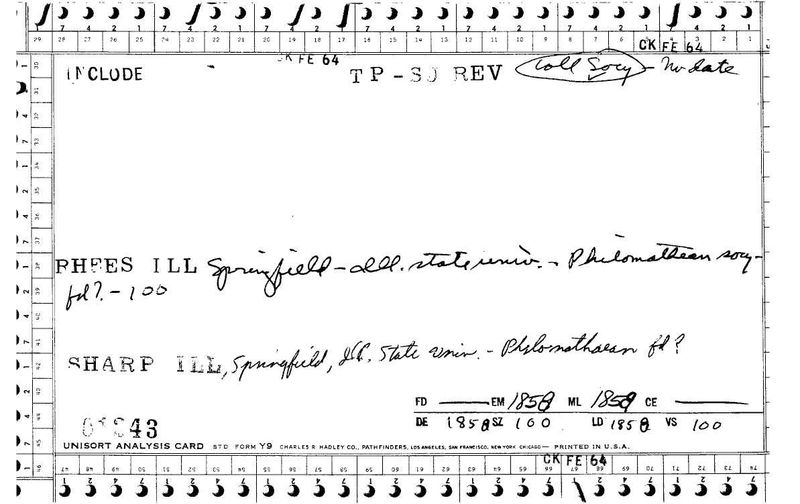 CK FE 64
CK FE 64
INCLUDE TP-SO REV Coll Socy - No date
RHEES ILL Springfield - Ill. state univ. - Philomathean socy -
fd? - 100
SHARP ILL, Springfield, Ill. State Univ. - Philomathaean fd?
FD EM 1858 ML 1858 CE
DE 1858 SZ 100 LD 1858 VS 100
43
UNISORT ANALYSIS CARD STD FORM Y9 CHARLES R. HADLEY CO., PATHFINDERS, LOS ANGELES, SAN FRANCISCO, NEW YORK CHICAGO — PRINTED IN U.S.A.
CK FE 64